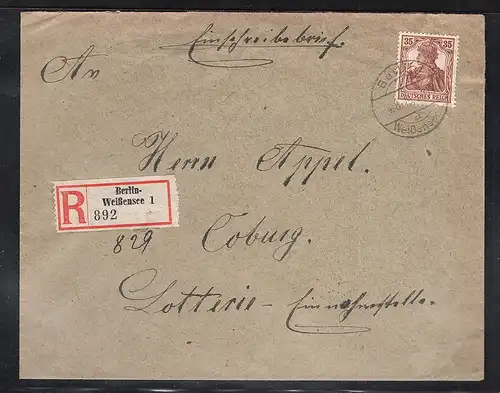 Einschreibebrief.
35 35
DEUTSCHES REICH
An
Weißensee
Herrn Appel.
R
Berlin-
Weißensee 1
892
829
Coburg.
Lotterie-Einnahmestelle.